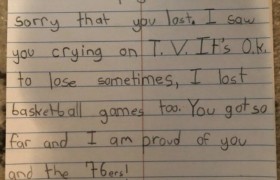 sorry that you lost. I saw
you crying on T.V. It's O.k.
to lose sometimes, I lost
basketball games too. You got so
far and I am proud of you
and the 76ers!